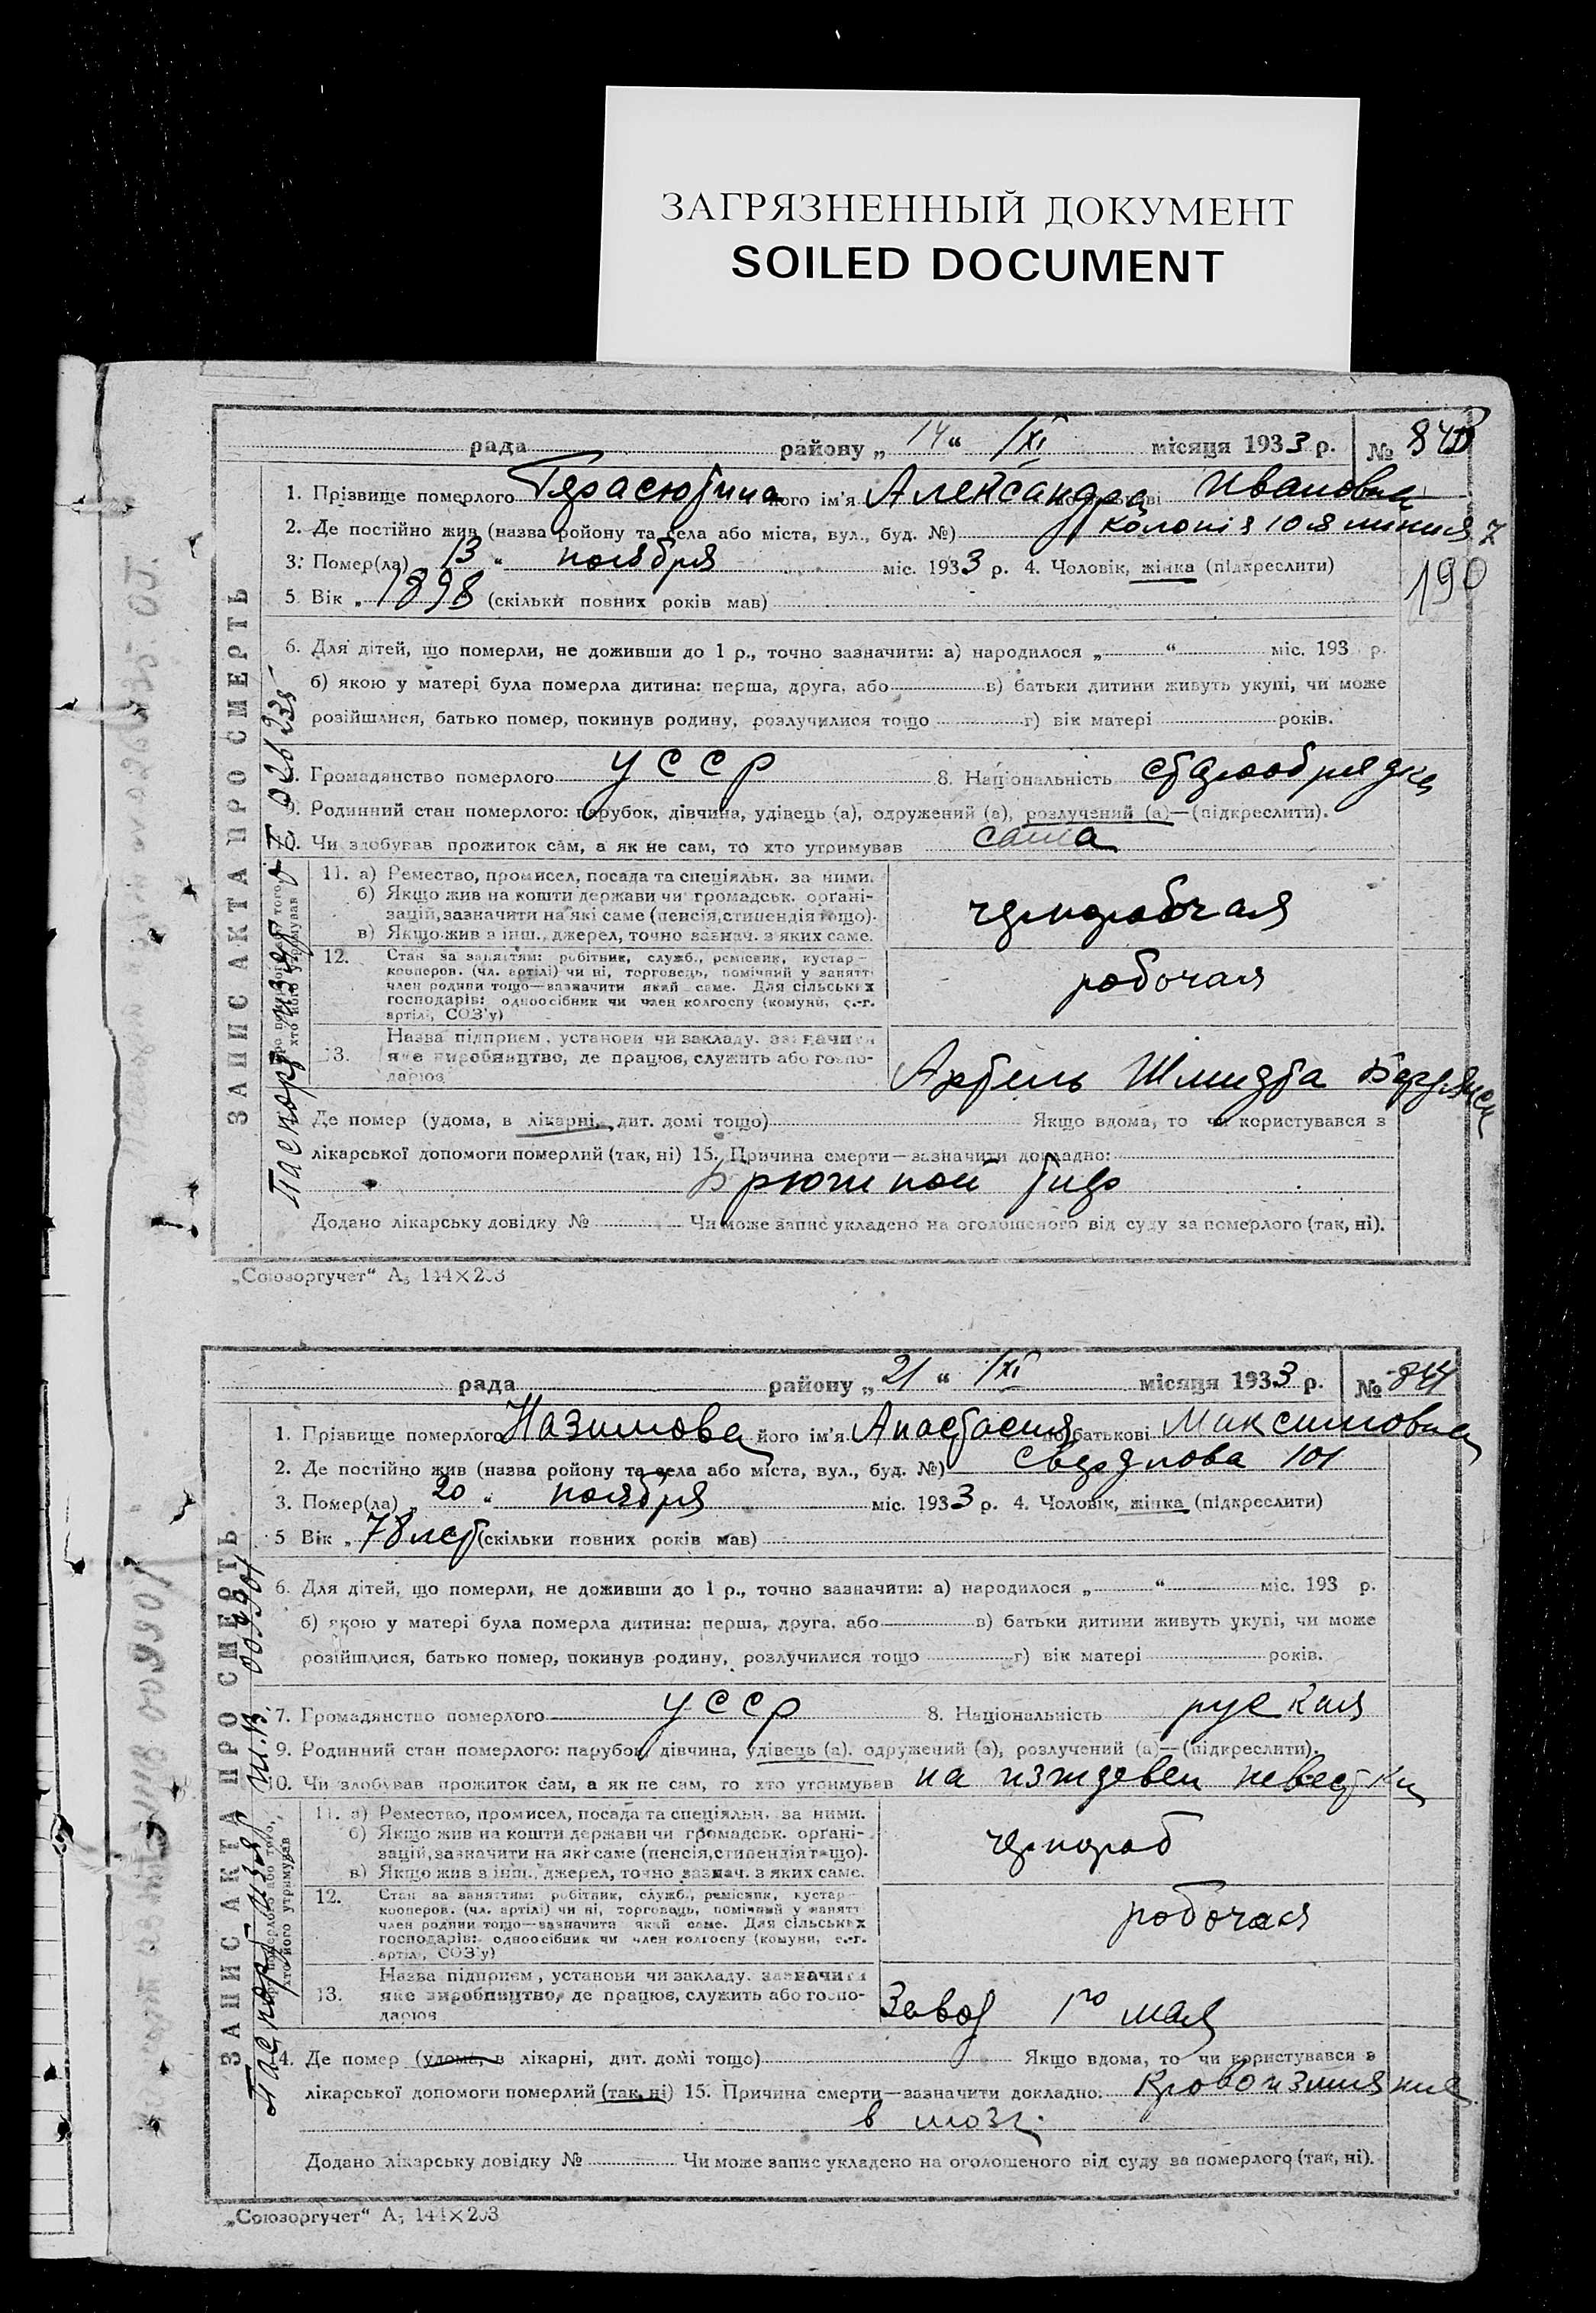 ЗАГРЯЗНЕННЫЙ ДОКУМЕНТ
SOILED DOCUMENT
рада району „ 14 “ /XI місяця 1933 р. №
ЗАПИС АКТА ПРО СМЕРТЬ
1. Прізвище померлого його ім'я Александра Ивановна
2. Де постійно жив (назва ройону та села або міста, вул., буд. №) колонія 10 я линия 7
3. Помер(ла) 13 “ ноября міс. 1933 р. 4. Чоловік, жінка (підкреслити)
190
5 Вік „ 1898 (скільки повних років мав)
6. Для дітей, що померли, не доживши до 1 р., точно зазначити: а) народилося „ “ міс. 193 р.
б) якою у матері була померла дитина: перша, друга, або в) батьки дитини живуть укупі, чи може
розійшлися, батько помер, покинув родину, розлучилися тощо г) вік матері років.
Громадянство померлого УССР 8. Національність старообрядка
9. Родинний стан померлого: парубок, дівчина, удівець (а), одружений (а), розлучений (а)—(підкреслити).
10. Чи здобував прожиток сам, а як не сам, то хто утримував сама
11. а) Ремество, промисел, посада та спеціяльн. за ними.
б) Якщо жив на кошти держави чи громадськ. органі-
зацій, зазначити на які саме (пенсія, стипендія тощо).
в) Якщо жив з інш. джерел, точно зазнач. з яких саме.
чернорабочая
12. Стан за заняттям: робітник, служб., ремісник, кустар—
кооперов. (чл. артілі) чи ні, торговець, помічний у занятті
член родини тощо—зазначити який саме. Для сільських
господарів: одноосібник чи член колгоспу (комуни, с.-г.
артілі, СОЗ'у)
робочая
13. Назва підприєм., установи чи закладу. зазначити
яке виробництво, де працює, служить або госпо-
дарює
Артель Шмидта
Де помер (удома, в лікарні, дит. домі тощо) Якщо вдома, то чи користувався з
лікарської допомоги померлий (так, ні) 15. Причина смерти—зазначити докладно:
Брюшной тиф
Додано лікарську довідку № Чи може запис укладено на оголошеного від суду за померлого (так, ні).
„Союзоргучет“ А₅ 144×203
рада району „ 21 “ /XI місяця 1933 р. № 844
ЗАПИС АКТА ПРО СМЕРТЬ
1. Прізвище померлого Назимова його ім'я Анастасия по батькові Максимовна
2. Де постійно жив (назва ройону та села або міста, вул., буд. №) Свердлова 101
3. Помер(ла) „ 20 “ ноября міс. 1933 р. 4. Чоловік, жінка (підкреслити)
5 Вік „ 78 лет (скільки повних років мав)
6. Для дітей, що померли, не доживши до 1 р., точно зазначити: а) народилося „ “ міс. 193 р.
б) якою у матері була померла дитина: перша, друга, або в) батьки дитини живуть укупі, чи може
розійшлися, батько помер, покинув родину, розлучилися тощо г) вік матері років.
7. Громадянство померлого УССР 8. Національність руская
9. Родинний стан померлого: парубок, дівчина, удівець (а), одружений (а), розлучений (а)—(підкреслити).
10. Чи здобував прожиток сам, а як не сам, то хто утримував на изждевен невестки
11. а) Ремество, промисел, посада та спеціяльн. за ними.
б) Якщо жив на кошти держави чи громадськ. органі-
зацій, зазначити на які саме (пенсія, стипендія тощо).
в) Якщо жив з інш. джерел, точно зазнач. з яких саме.
чернораб
12. Стан за заняттям: робітник, служб., ремісник, кустар—
кооперов. (чл. артілі) чи ні, торговець, помічний у занятті
член родини тощо—зазначити який саме. Для сільських
господарів: одноосібник чи член колгоспу (комуни, с.-г.
артілі, СОЗ'у)
робочая
13. Назва підприєм., установи чи закладу. зазначити
яке виробництво, де працює, служить або госпо-
дарює
Завод 1го мая
14. Де помер (удома, в лікарні, дит. домі тощо) Якщо вдома, то чи користувався з
лікарської допомоги померлий (так, ні) 15. Причина смерти—зазначити докладно: Кровоизлияние
в мозг.
Додано лікарську довідку № Чи може запис укладено на оголошеного від суду за померлого (так, ні).
„Союзоргучет“ А₅ 144×203